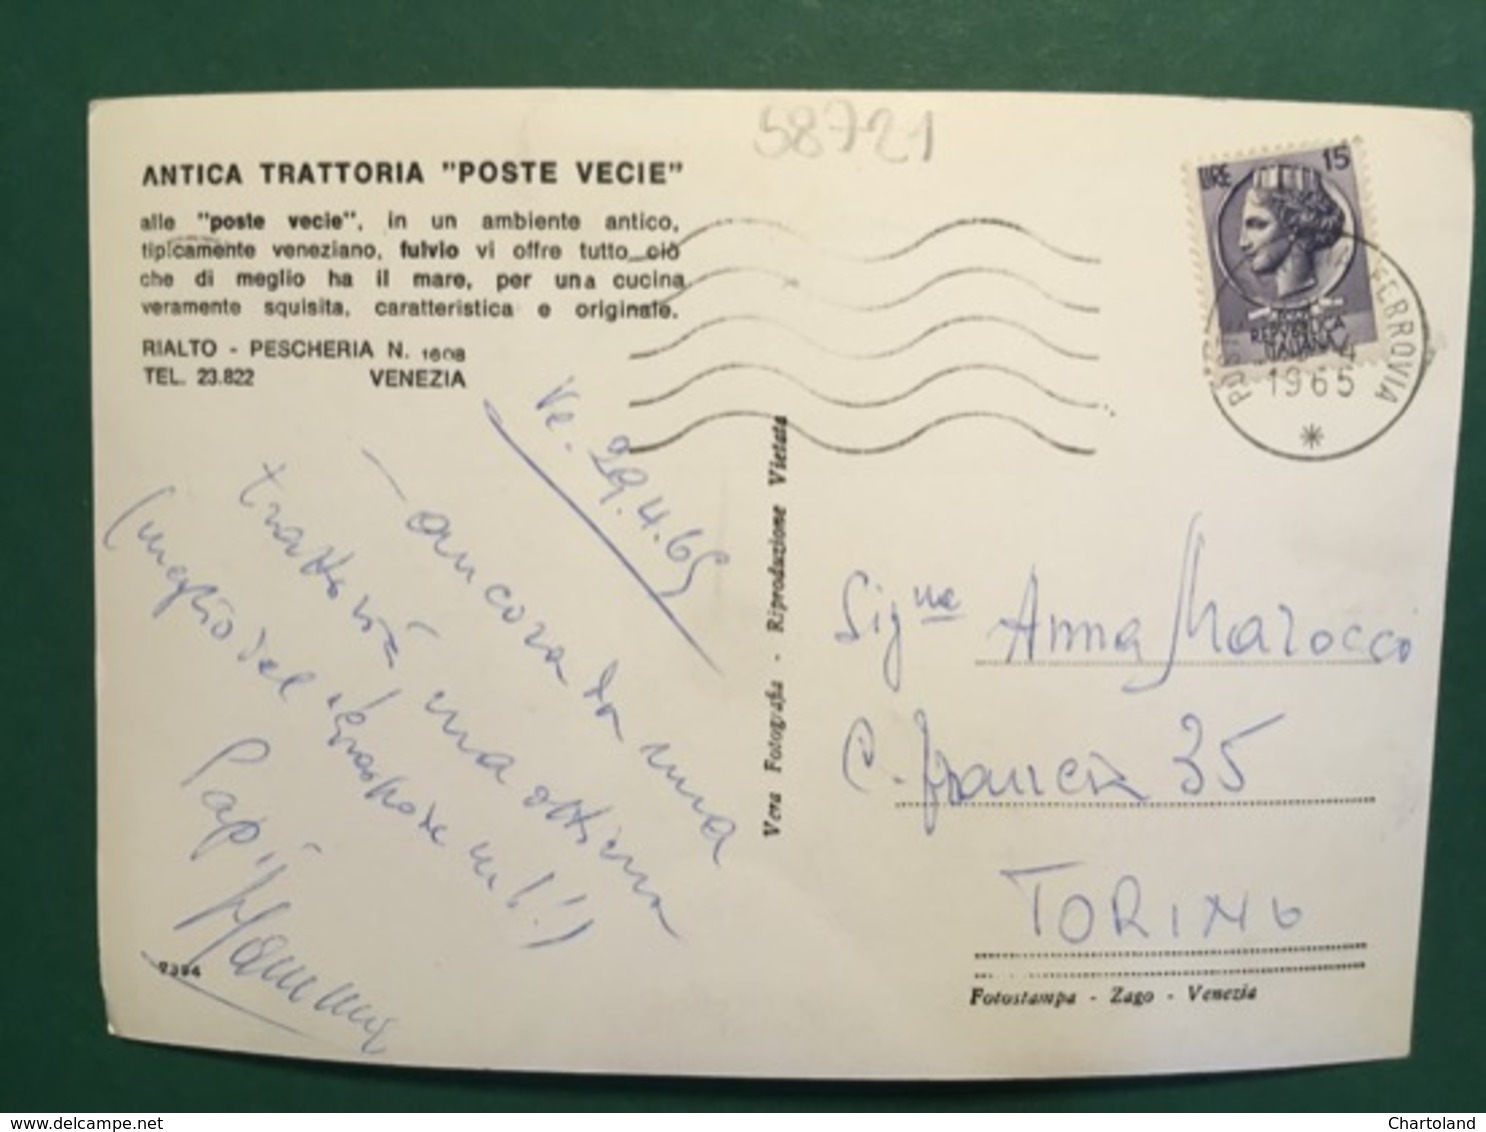 58721
ANTICA TRATTORIA "POSTE VECIE"
alle "poste vecie", in un ambiente antico,
tipicamente veneziano, fulvio vi offre tutto ciò
che di meglio ha il mare, per una cucina
veramente squisita, caratteristica e originale.
RIALTO - PESCHERIA N. 1608
TEL. 23.822 VENEZIA
LIRE 15
REPVBBLICA
ITALIANA
FERROVIA
1965
Ve. 29.4.65
ancora da una
trattoria, ma ottima
(meglio del
Papi
Vera Fotografia - Riproduzione Vietata
Sig.na Anna Marocco
C. Francia 35
TORINO
Fotostampa - Zago - Venezia
www.delcampe.net
Chartoland